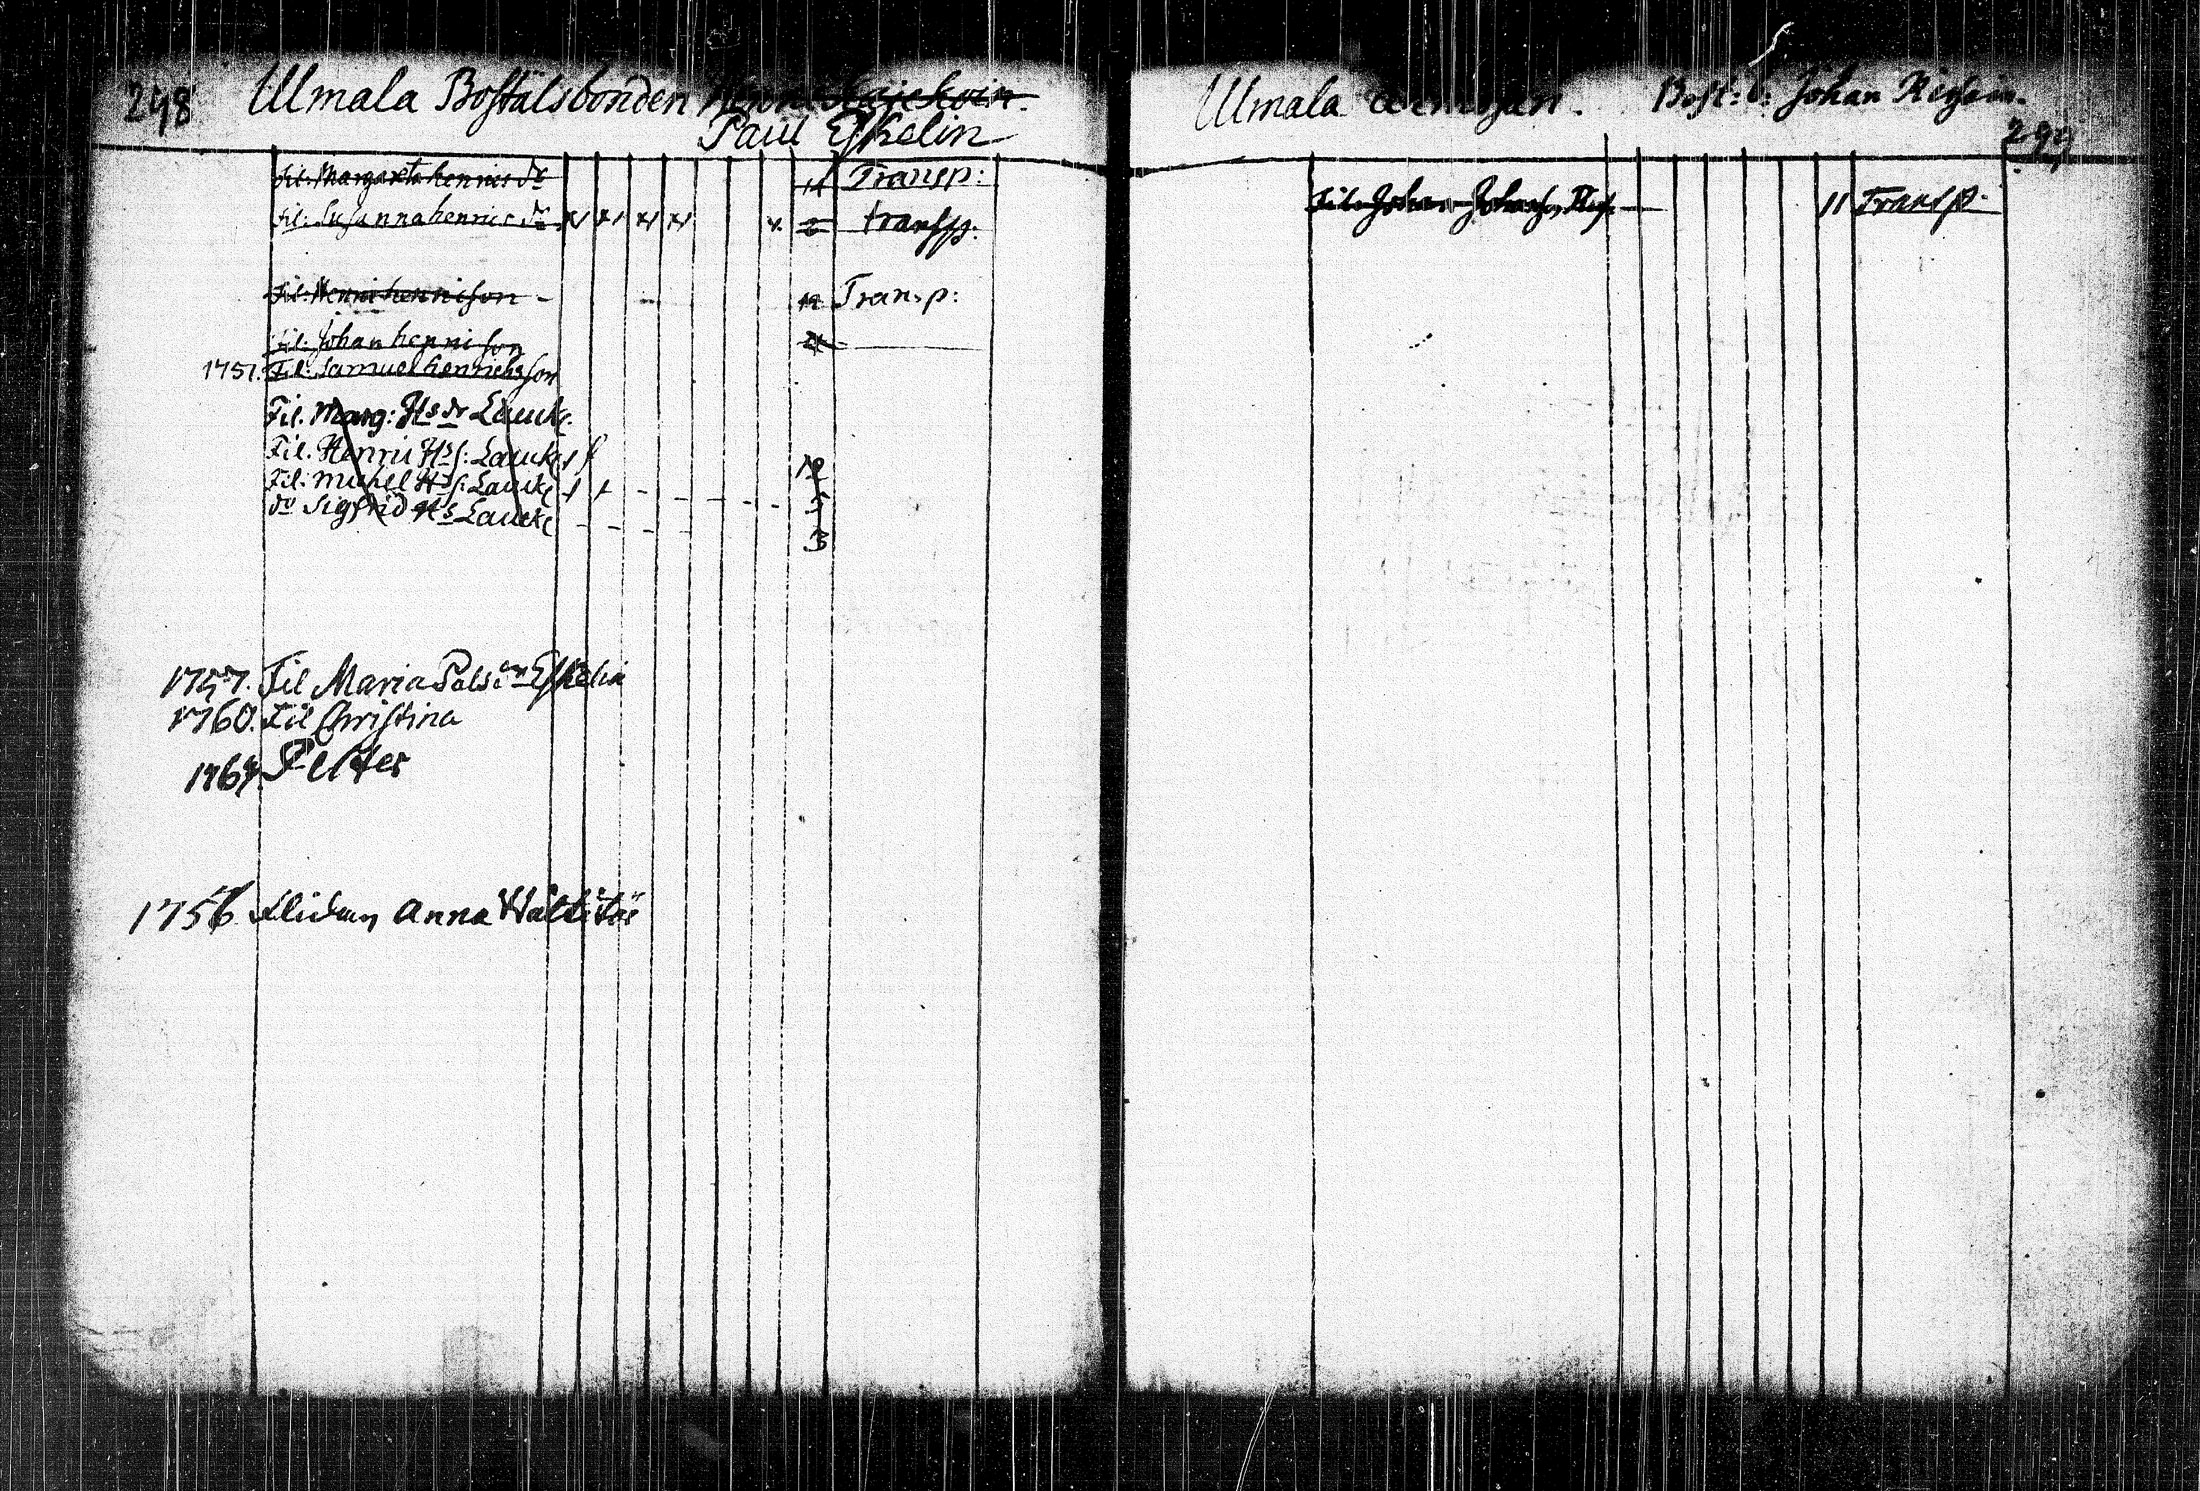 298 Ulmala Bostälsbonden
Paul Eskelin
Fil: Margareta henrics dr 14 Transp:
Fil: Susanna henrics dr x x x x x transp:
Fil: Henric hennison - 12 Transp:
Fil: Johan hennison
1751. Fil: Samuel henricsson
Fil. Marg: Hs dr Lauck
Fil. Henric Hs s: Lauck 12
Fil: Michel Hs s: Lauck 5
do Sigfrid Hs Lauck 3
1757. Fil Maria Pals dr Eskelin
1760. Fil Christina
1764. Petter
1756 Flickan Anna
Ulmala Bost: b: Johan
299
Fil. Johan Johans 11 Transp.